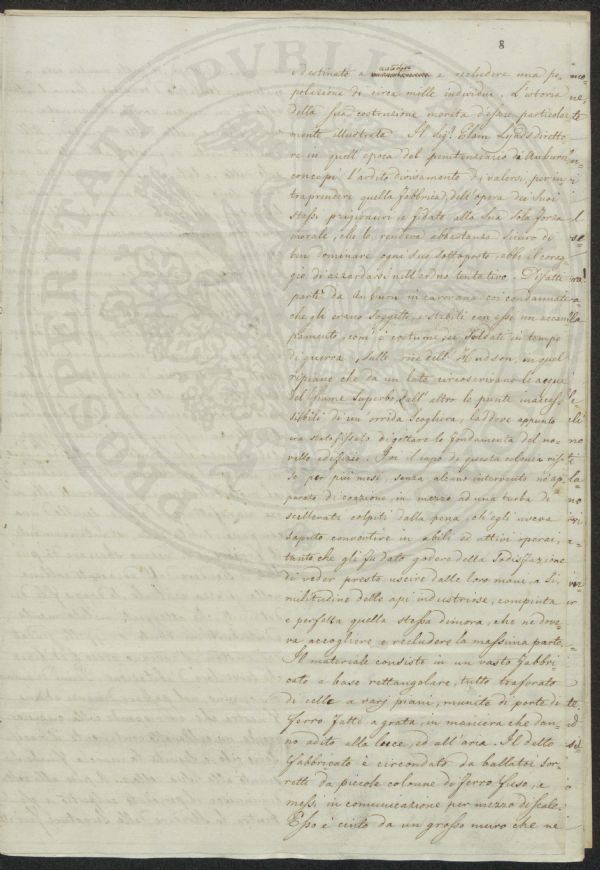 8
e destinato a custodire e recludere una po-
polazione di circa mille individui. L'istoria
della sua costruzione merita d'essere particolar-
mente illustrata. Il sig.r Elam Lynds dirетto-
re in quell'epoca del penitenziario di Auburn
concepì l'ardito divisamento di valersi, per in-
traprendere quella fabbrica, dell'opera dei suoi
stessi prigionieri, e fidato alla sua sola forza
morale, che lo rendeva abbastanza sicuro di
ben dominare ogni suo sottoposto, ebbe il corag-
gio di azzardarsi nell'arduo tentativo. Difatti
partì da Auburn in carovana coi condannati
che gli erano soggetti, e stabilì con essi un accam-
pamento, com'è costume dei soldati in tempo
di guerra, sulle rive dell'Hudson, in quel
ripiano che da un lato circoscrivano le acque
del fiume superbo, dall'altro le punte inacces-
sibili di un'orrida scogliera, laddove appunto
era stato fissato di gittare le fondamenta del no-
vello edifizio. In il capo di questa colonia rifu-
se per più mesi, senza alcuno intervento no ap-
parato di coazione, in mezzo ad una turba di
scellerati colpiti dalla pena, ch'egli aveva
saputo convertire in abili ed attivi operai,
tanto che gli fu dato godere della sodisfazione
di veder presto uscire dalle loro mani, a si-
militudine delle api industriose, compiuta
e perfetta quella stessa dimora, che ne dove-
va accogliere e recludere la massima parte.
Il materiale consiste in un vasto fabbri-
cato a base rettangolare, tutto traforato
di celle a varj piani, munite di porte di
ferro fatte a grata, in maniera che dan-
no adito alla luce, ed all'aria. Il detto
fabbricato è circondato da ballatoi sor-
retti da piccole colonne di ferro fuso, e
messi in comunicazione per mezzo di scale.
Esso è cinto da un grosso muro che ne
PROSPERITATI PUBLICAE